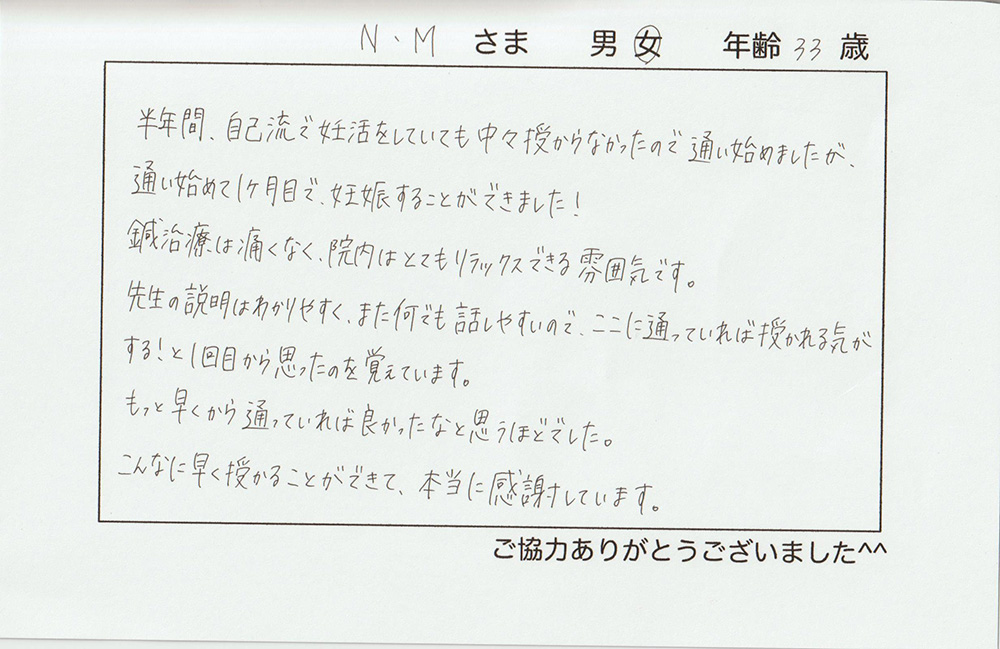 N・M さま 男 女 年齢 33 歳
半年間、自己流で妊活をしていても中々授からなかったので通い始めましたが、
通い始めて1ヶ月目で、妊娠することができました!
鍼治療は痛くなく、院内はとてもリラックスできる雰囲気です。
先生の説明はわかりやすく、また何でも話しやすいので、ここに通っていれば授かれる気が
する!と1回目から思ったのを覚えています。
もっと早くから通っていれば良かったなと思うほどでした。
こんなに早く授かることができて、本当に感謝しています。
ご協力ありがとうございました^^